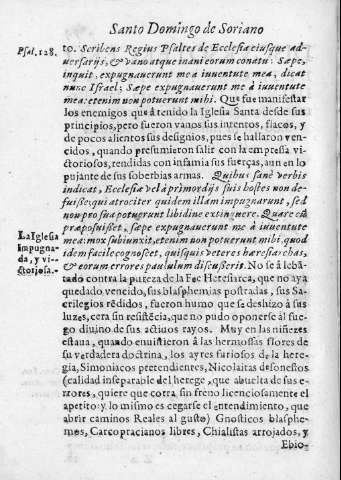 Santo Domingo de Soriano
Psal. 128.
to. Scribens Regius Psaltes de Ecclesia eiusque ad-
uersarijs, & vano atque inani eorum conatu: Sæpe,
inquit, expugnauerunt me à iuuentute mea, dicat
nunc Israel; Sæpe expugnauerunt me à iuuentute
mea: etenim non potuerunt mihi. Que fue manifestar
los enemigos que à tenido la Iglesia Santa desde sus
principios, pero fueron vanos sus intentos, flacos, y
de pocos alientos sus designios, pues se hallaron ven-
cidos, quando presumieron salir con la empressa vi-
ctoriosos, rendidas con infamia sus fuerças, aun en lo
pujante de sus soberbias armas. Quibus sanè verbis
indicat, Ecclesiæ vel à primordijs suis hostes non de-
fuisse, qui atrociter quidem illam impugnarunt, sed
non pro sua potuerunt libidine extinguere. Quare cū
præposuisset, sæpe expugnauerunt me à iuuentute
mea: mox subiunxit, etenim non potuerunt mihi. quod
idem facile cognoscet, quisquis veteres hæresiarchas,
& eorum errores paululum discusserit. No se à leba-
La Iglesia
impugna-
da, y vi-
ctoriosa.
tado contra la pureza de la Fee Heresiarca, que no aya
quedado vencido, sus blasphemias postradas, sus Sa-
crilegios rēdidos, fueron humo que se deshizo à sus
luzes, cera sin resistēcia, que no pudo oponerse al fue-
go diuino de sus actiuos rayos. Muy en las niñezes
estaua, quando enuistieron à las hermosas flores de
su verdadera doctrina, los ayres furiosos de la here-
gia, Simoniacos pretendientes, Nicolaitas desonestos
(calidad inseparable del herege, que abuelta de sus e-
rrores, quiere que corra sin freno licenciosamente el
apetito: y lo mismo es cegarse el entendimiento, que
abrir caminos Reales al gusto) Gnosticos blasphe-
mos, Carcopracianos libres, Chialistas arrojados, y
Ebio-